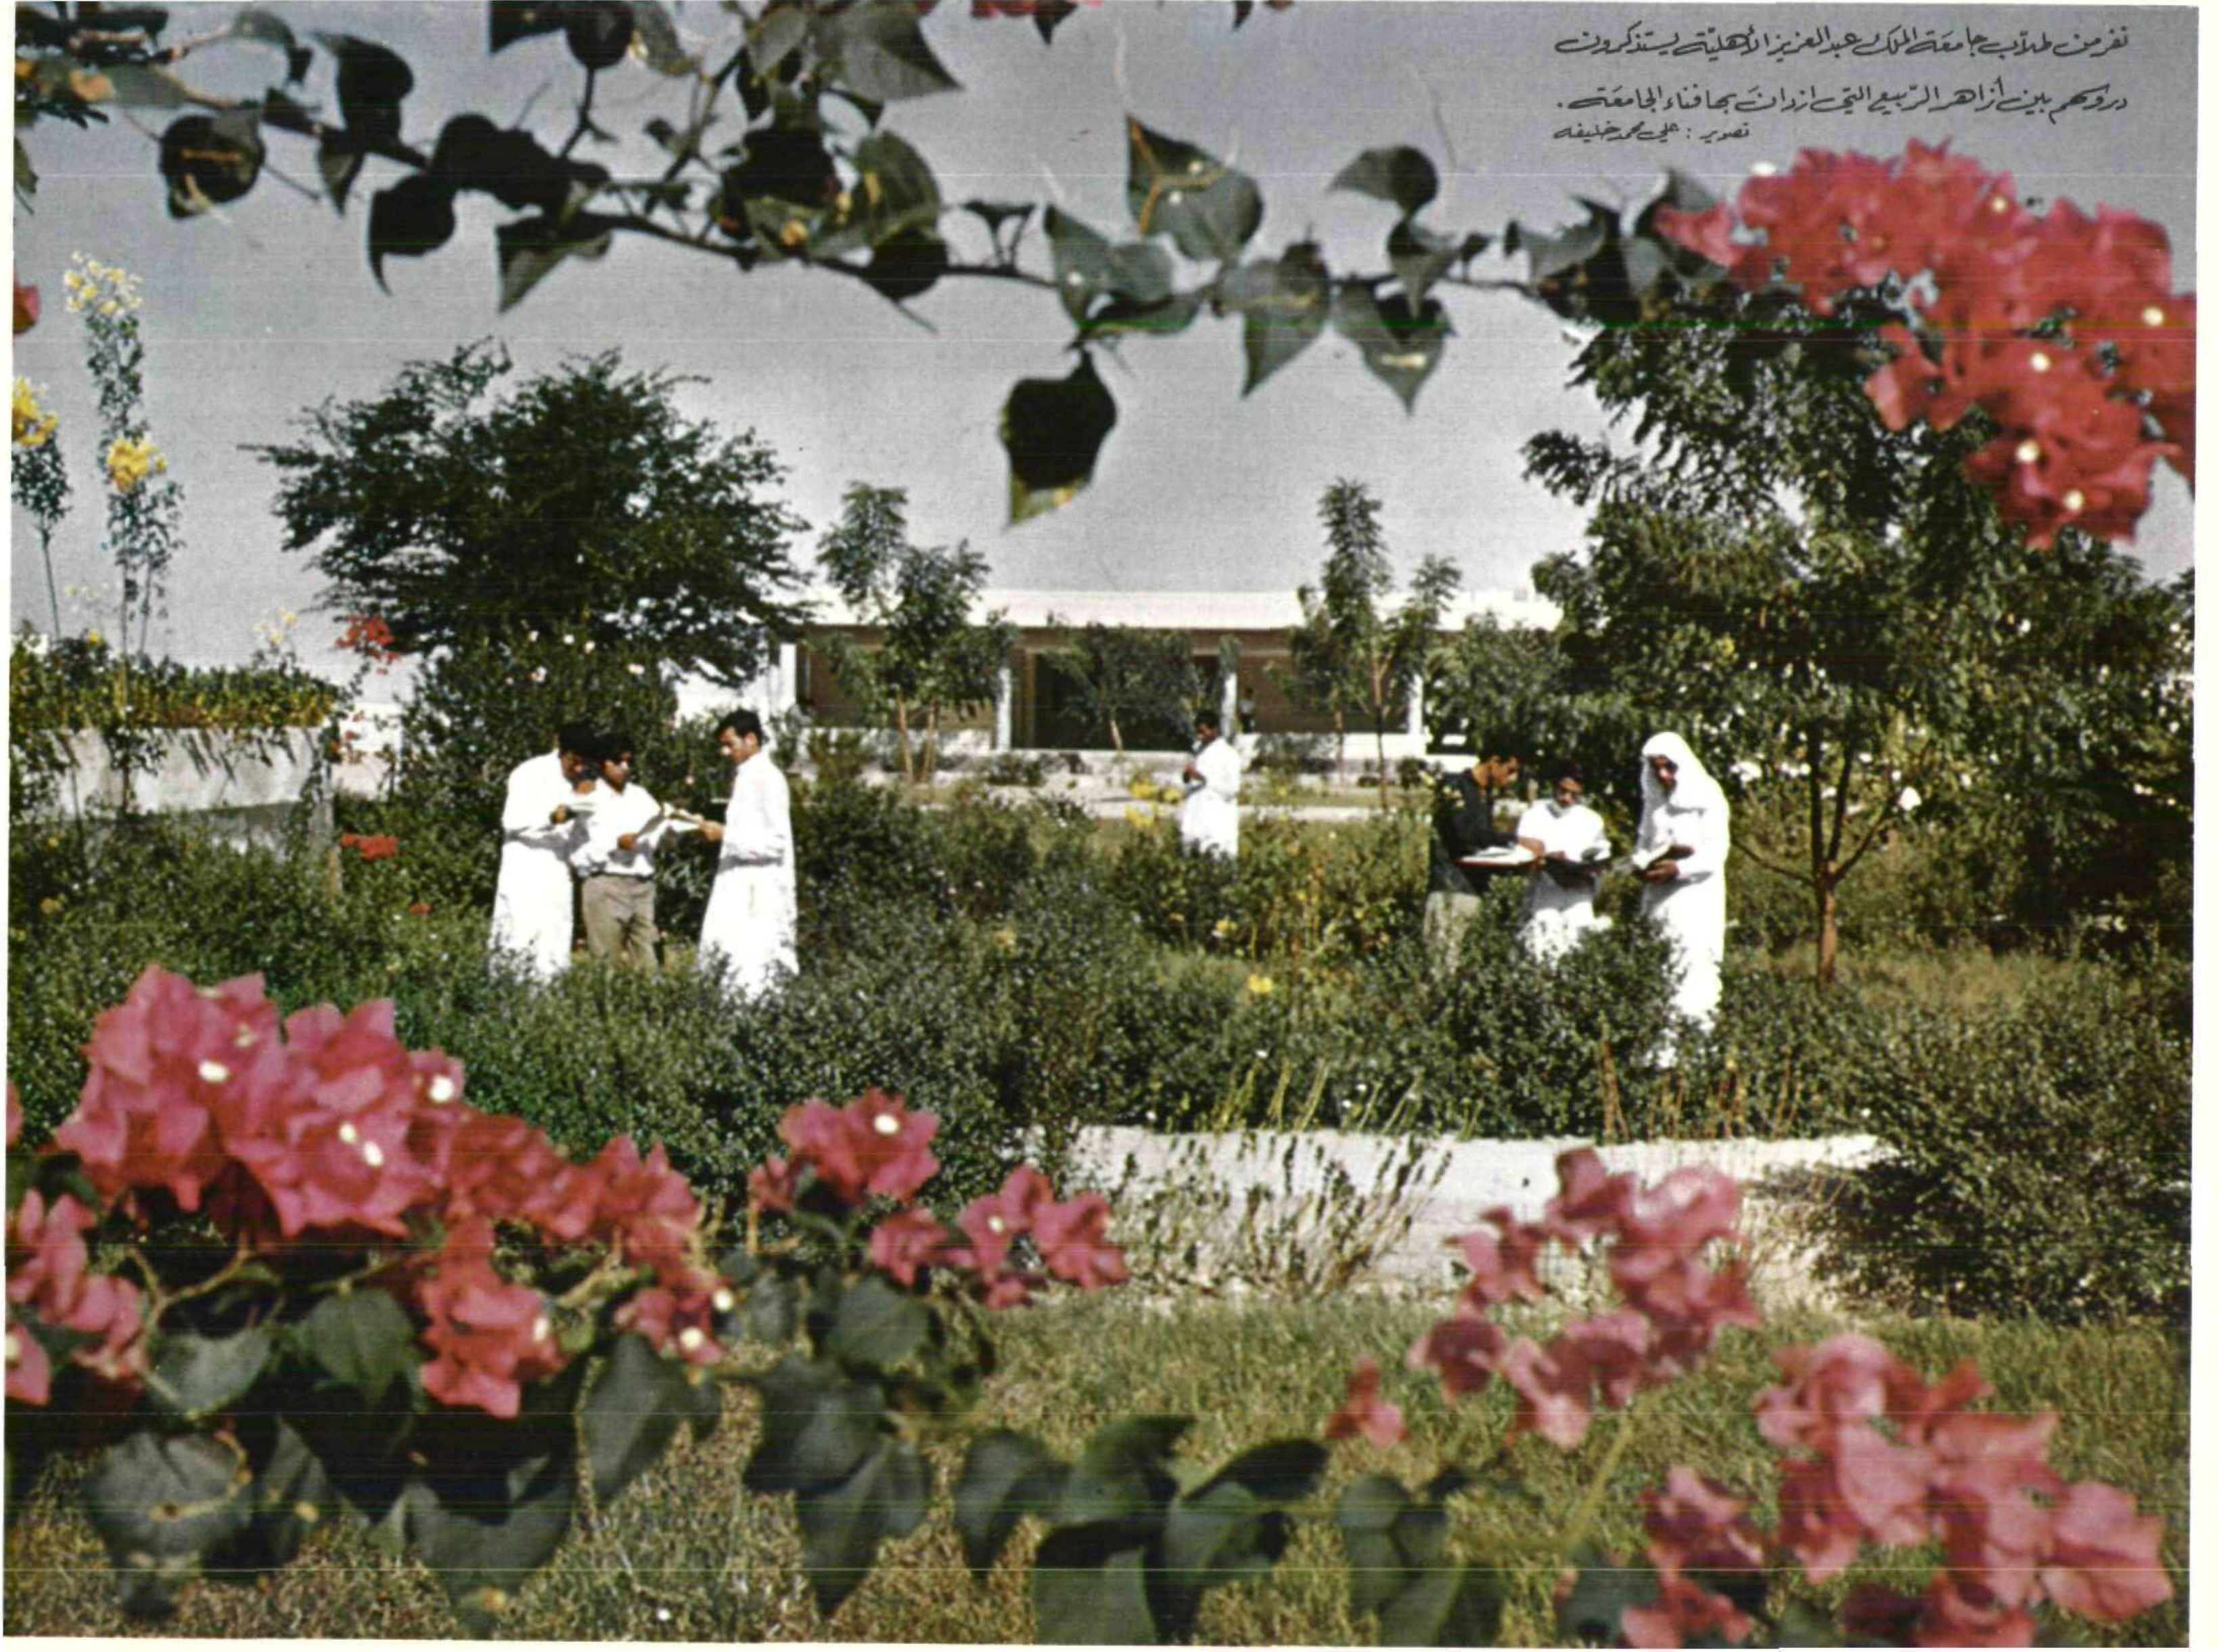 نفر من طلاب جامعة الملك عبد العزيز الأهليّة يستذكرون
دروسهم بين أزاهر الرّبيع التي ازدانَ بها فناء الجامعَة .
تصوير : علي محمد خليفه